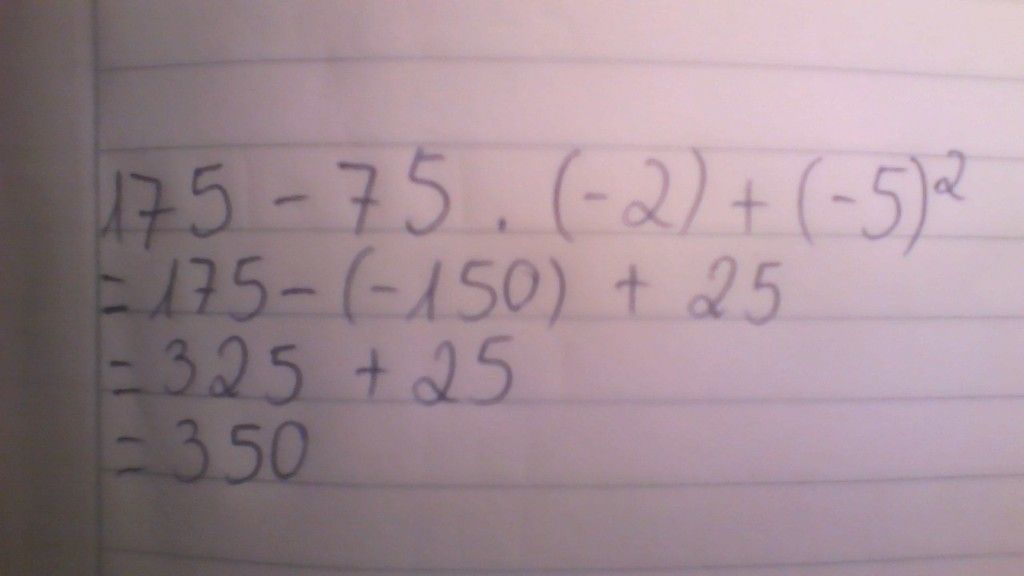 175 - 75 . (-2) + (-5)²
= 175 - (-150) + 25
= 325 + 25
= 350